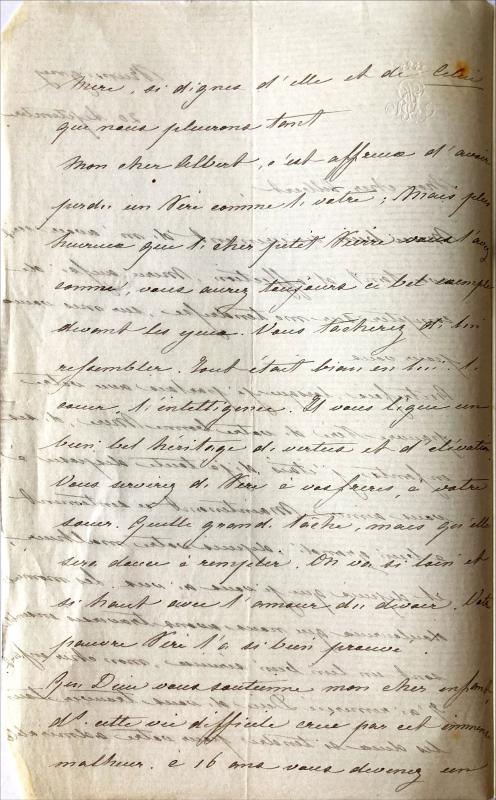 Mère, si dignes d'elle et de Celui
que nous pleurons tant
Mon cher Albert, c'est affreux d'avoir
perdu un Père comme le votre ; Mais plus
heureux que le cher petit Pierre vous l'avez
connu, vous aurez toujours ce bel exemple
devant les yeux. Vous tacherez de lui
ressembler. Tout était bien en lui : le
cœur, l'intelligence. Il vous lègue un
bien bel héritage de vertus et d'élévation
Vous servirez de Père à vos frères, à votre
sœur. Quelle grande tache, mais qu'elle
sera douce à remplir. On va si loin et
si haut avec l'amour du devoir. Votre
pauvre Père l'a si bien prouvé.
Que Dieu vous soutienne mon cher enfant,
ds. cette vie difficile créée par cet immense
malheur. à 16 ans vous devenez un